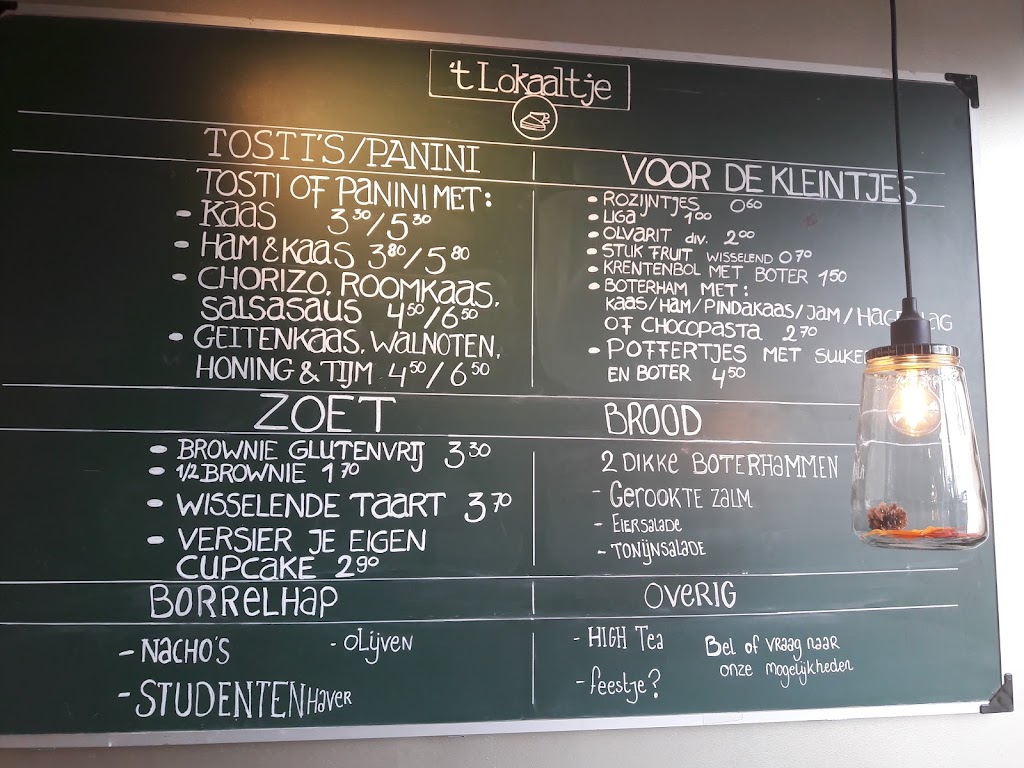 't Lokaaltje
TOSTI'S/PANINI
TOSTI OF PANINI MET:
- KAAS 3³⁰/5³⁰
- HAM & KAAS 3⁸⁰/5⁸⁰
- CHORIZO, ROOMKAAS,
SALSASAUS 4⁵⁰/6⁵⁰
- GEITENKAAS, WALNOTEN,
HONING & TIJM 4⁵⁰/6⁵⁰
VOOR DE KLEINTJES
- ROZIJNTJES 0⁶⁰
- LIGA 1⁰⁰
- OLVARIT div. 2⁰⁰
- STUK FRUIT WISSELEND 0⁷⁰
- KRENTENBOL MET BOTER 1⁵⁰
- BOTERHAM MET:
KAAS/HAM/PINDAKAAS/JAM/
OF CHOCOPASTA 2⁷⁰
- POFFERTJES MET
EN BOTER 4⁵⁰
ZOET
- BROWNIE GLUTENVRIJ 3³⁰
- 1/2 BROWNIE 1⁷⁰
- WISSELENDE TAART 3⁷⁰
- VERSIER JE EIGEN
CUPCAKE 2⁹⁰
BROOD
2 DIKKE BOTERHAMMEN
- GEROOKTE ZALM
- EIERSALADE
- TONIJNSALADE
BORRELHAP
- NACHO'S - OLIJVEN
- STUDENTENHAVER
OVERIG
- HIGH Tea
- feestje?
Bel of vraag naar
onze mogelijkheden